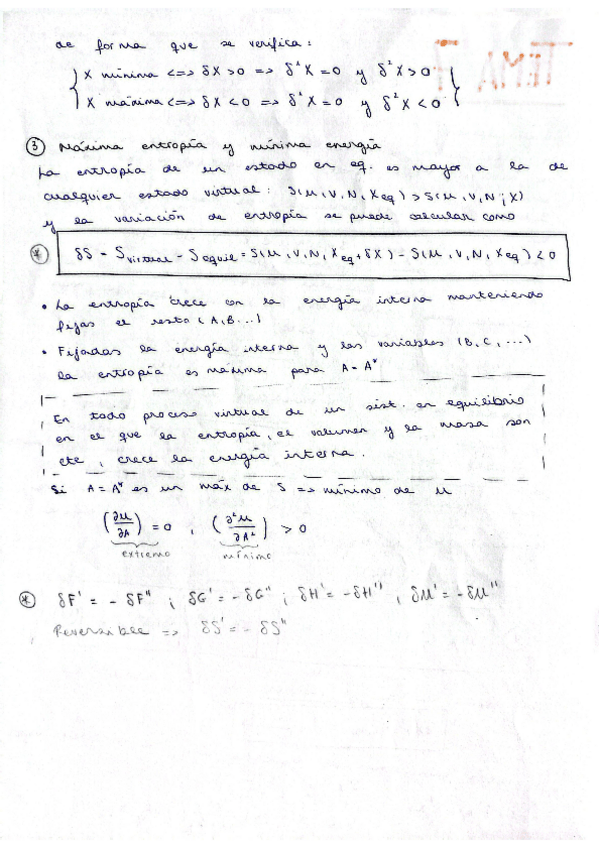 TEMA 7
de forma que se verifica:
X mínima <=> δX > 0 => δ²X = 0 y δ²X > 0
X máxima <=> δX < 0 => δ²X = 0 y δ²X < 0
③ Máxima entropía y mínima energía
La entropía de un estado en eq. es mayor a la de
cualquier estado virtual: S(u, V, N, Xeq) > S(u, V, N; X)
y la variación de entropía se puede calcular como
* δS = Svirtual - Sequil = S(u, V, N, Xeq + δX) - S(u, V, N, Xeq) < 0
• La entropía crece con la energía interna manteniendo
fijas el resto (A, B...)
• Fijadas la energía interna y las variables (B, C, ...)
la entropía es máxima para A = A*
En todo proceso virtual de un sist. en equilibrio
en el que la entropía, el volumen y la masa son
cte, crece la energía interna.
Si A = A* es un máx de S => mínimo de u
(∂u/∂A) = 0 , (∂²u/∂A²) > 0
extremo mínimo
* δF' = - δF'' ; δG' = - δG'' ; δH' = - δH'' , δu' = - δu''
Reversible => δS' = - δS''